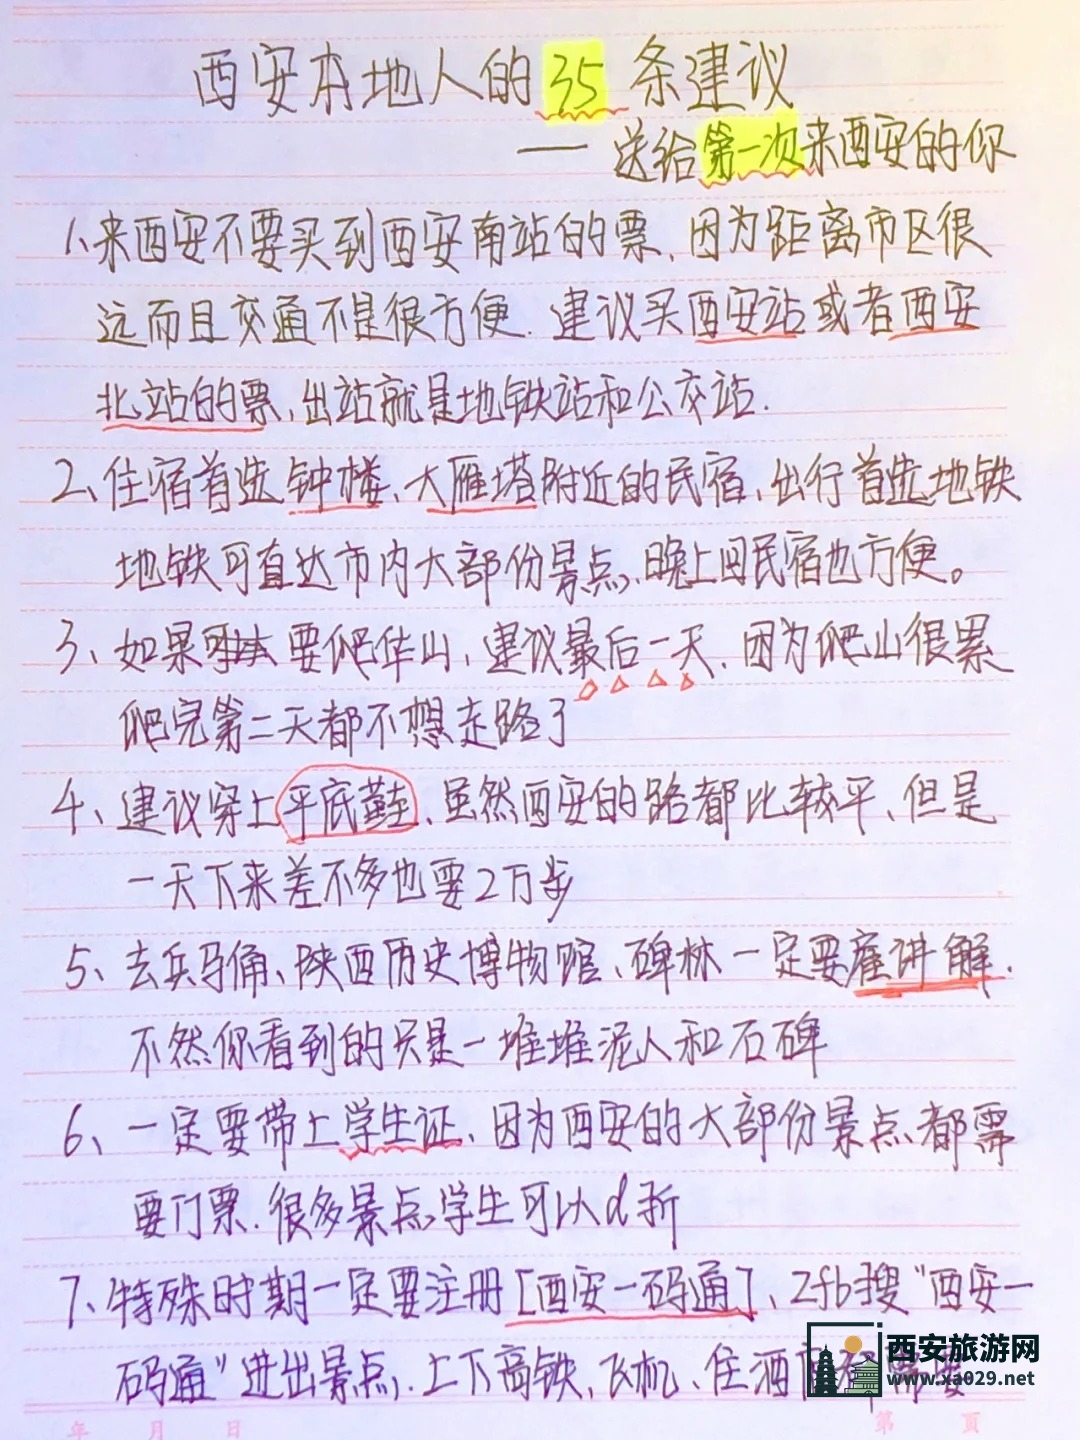 西安本地人的35条建议
—— 送给第一次来西安的你
1、来西安不要买到西安南站的票,因为距离市区很
远而且交通不是很方便.建议买西安站或者西安
北站的票,出站就是地铁站和公交站.
2、住宿首选钟楼、大雁塔附近的民宿、出行首选地铁
地铁可直达市内大部份景点,晚上回民宿也方便。
3、如果要爬华山,建议最后一天,因为爬山很累
爬完第二天都不想走路了
4、建议穿上平底鞋、虽然西安的路都比较平、但是
一天下来差不多也要2万步
5、去兵马俑、陕西历史博物馆、碑林一定要雇讲解.
不然你看到的只是一堆堆泥人和石碑
6、一定要带上学生证、因为西安的大部份景点都需
要门票.很多景点学生可以d折
7、特殊时期一定要注册[西安一码通]、Zfb搜"西安一
码通"进出景点.上下高铁,飞机、住酒店都需要
西安旅游网
www.xa029.net
年 月 日
第 頁